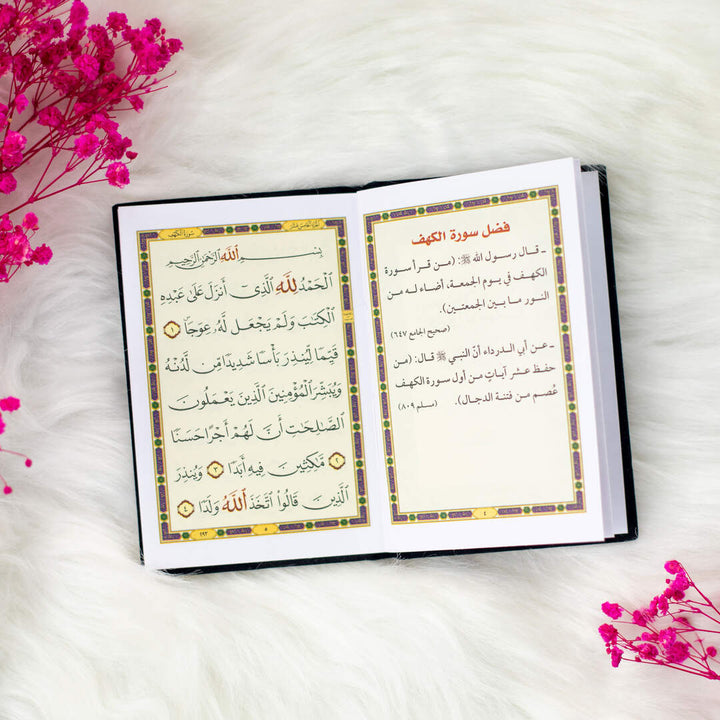 فضل سورة الكهف
ـ قال رسول الله ﷺ: (من قرأ سورة
الكهف في يوم الجمعة، أضاء له من
النور ما بين الجمعتين).
(صحيح الجامع ٦٤٧)
ـ عن أبي الدرداء أنّ النبي ﷺ قال: (من
حفظ عشر آياتٍ من أول سورة الكهف
عُصم من فتنة الدجال). (مسلم ٨٠٩)
٤
سورة الكهف
الجزء الخامس عشر
بِسْمِ ٱللَّهِ ٱلرَّحْمَٰنِ ٱلرَّحِيمِ
ٱلْحَمْدُ لِلَّهِ ٱلَّذِىٓ أَنزَلَ عَلَىٰ عَبْدِهِ
ٱلْكِتَٰبَ وَلَمْ يَجْعَل لَّهُۥ عِوَجَاۜ ١
قَيِّمًا لِّيُنذِرَ بَأْسًا شَدِيدًا مِّن لَّدُنْهُ
وَيُبَشِّرَ ٱلْمُؤْمِنِينَ ٱلَّذِينَ يَعْمَلُونَ
ٱلصَّٰلِحَٰتِ أَنَّ لَهُمْ أَجْرًا حَسَنًا
٢ مَّٰكِثِينَ فِيهِ أَبَدًا ٣ وَيُنذِرَ
ٱلَّذِينَ قَالُوا۟ ٱتَّخَذَ ٱللَّهُ وَلَدًا ٤
٥
٢٩٣